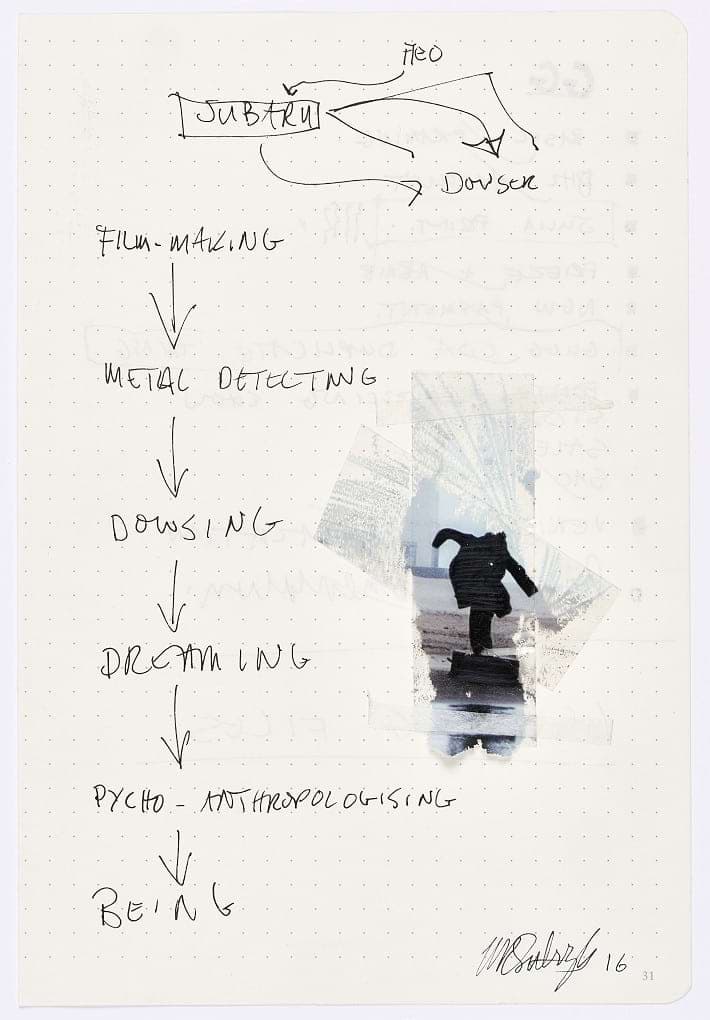 SUBARU
DOWSER
FILM-MAKING
METAL DETECTING
DOWSING
DREAMING
PYCHO - ANTHROPOLOGISING
BEING
16
31